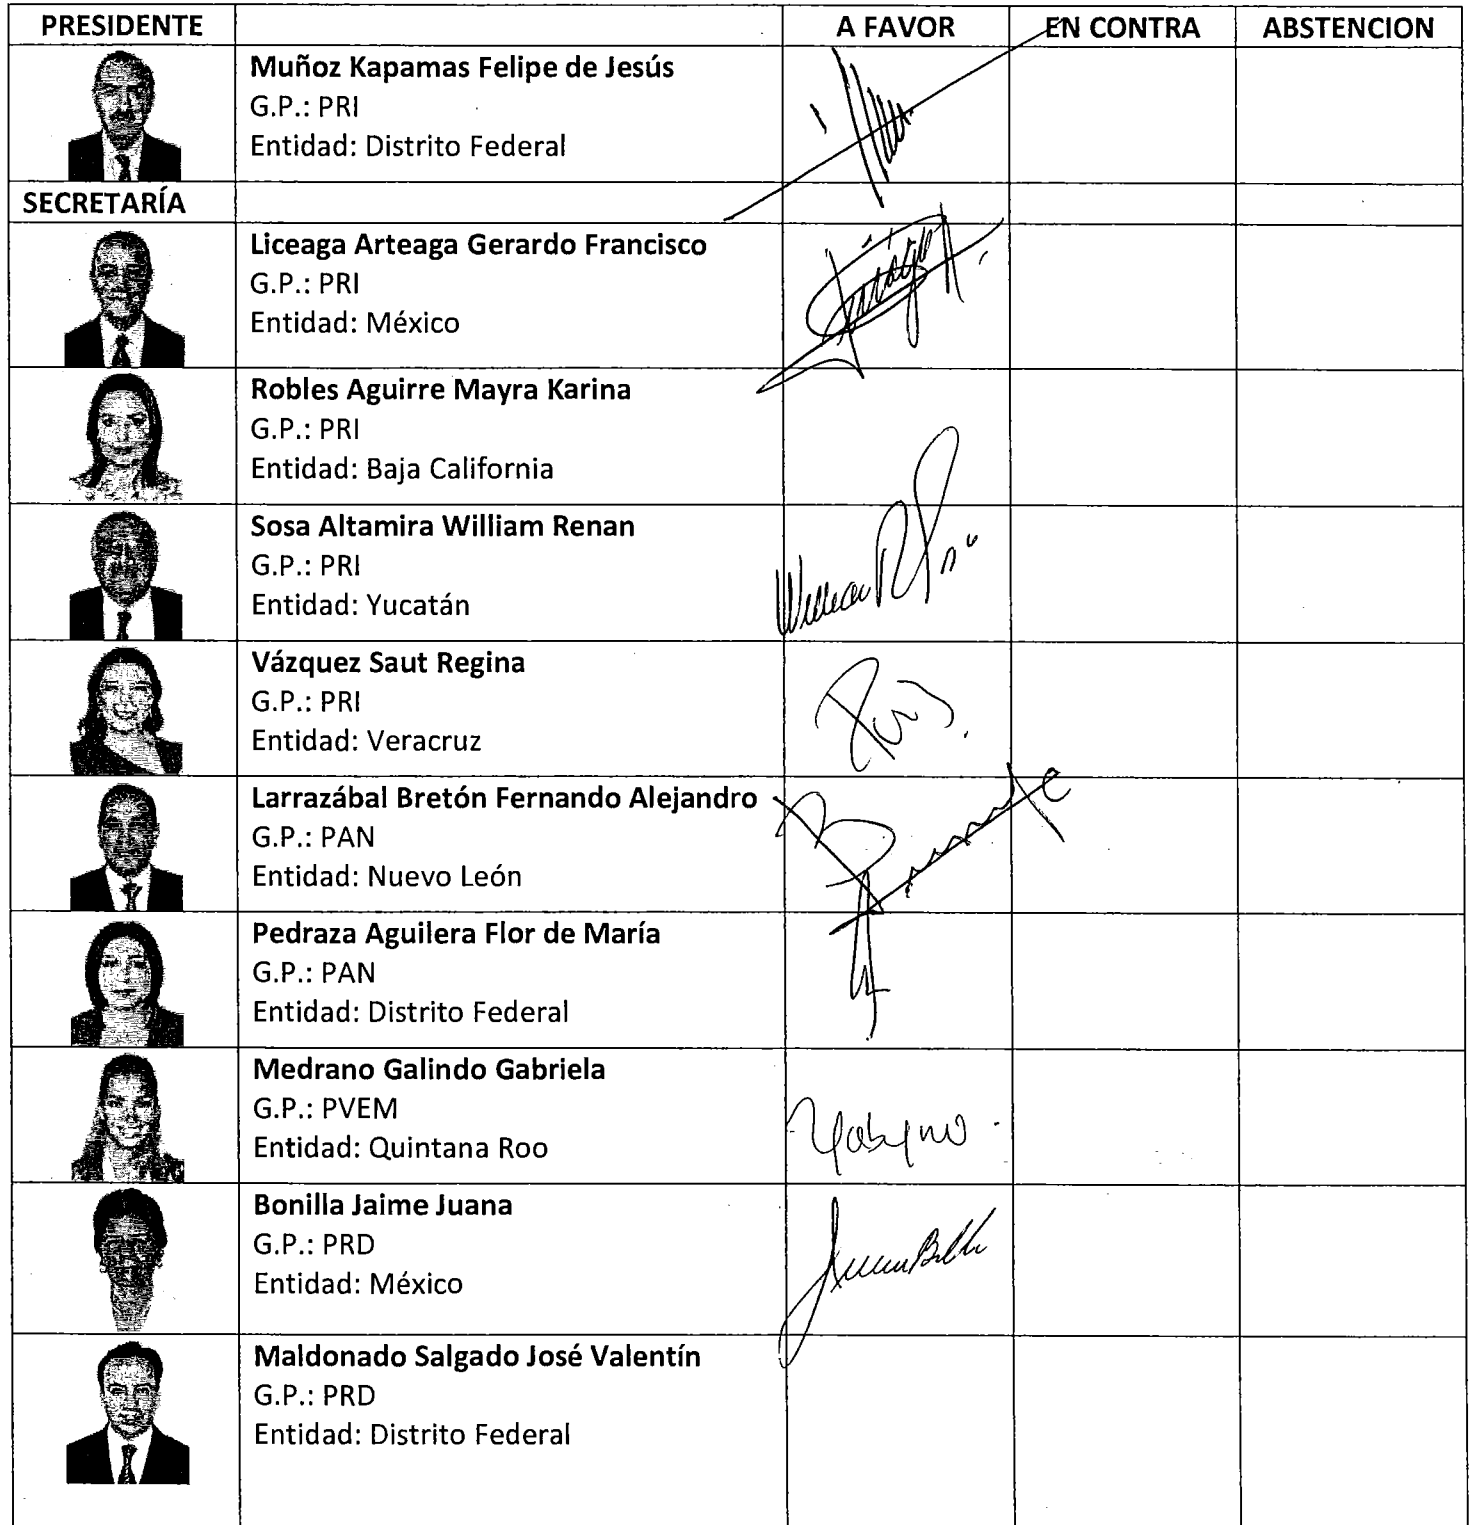 PRESIDENTE A FAVOR EN CONTRA ABSTENCION
Muñoz Kapamas Felipe de Jesús
G.P.: PRI
Entidad: Distrito Federal
SECRETARÍA
Liceaga Arteaga Gerardo Francisco
G.P.: PRI
Entidad: México
Robles Aguirre Mayra Karina
G.P.: PRI
Entidad: Baja California
Sosa Altamira William Renan
G.P.: PRI
Entidad: Yucatán
Vázquez Saut Regina
G.P.: PRI
Entidad: Veracruz
Larrazábal Bretón Fernando Alejandro
G.P.: PAN
Entidad: Nuevo León
Pedraza Aguilera Flor de María
G.P.: PAN
Entidad: Distrito Federal
Medrano Galindo Gabriela
G.P.: PVEM
Entidad: Quintana Roo
Bonilla Jaime Juana
G.P.: PRD
Entidad: México
Maldonado Salgado José Valentín
G.P.: PRD
Entidad: Distrito Federal